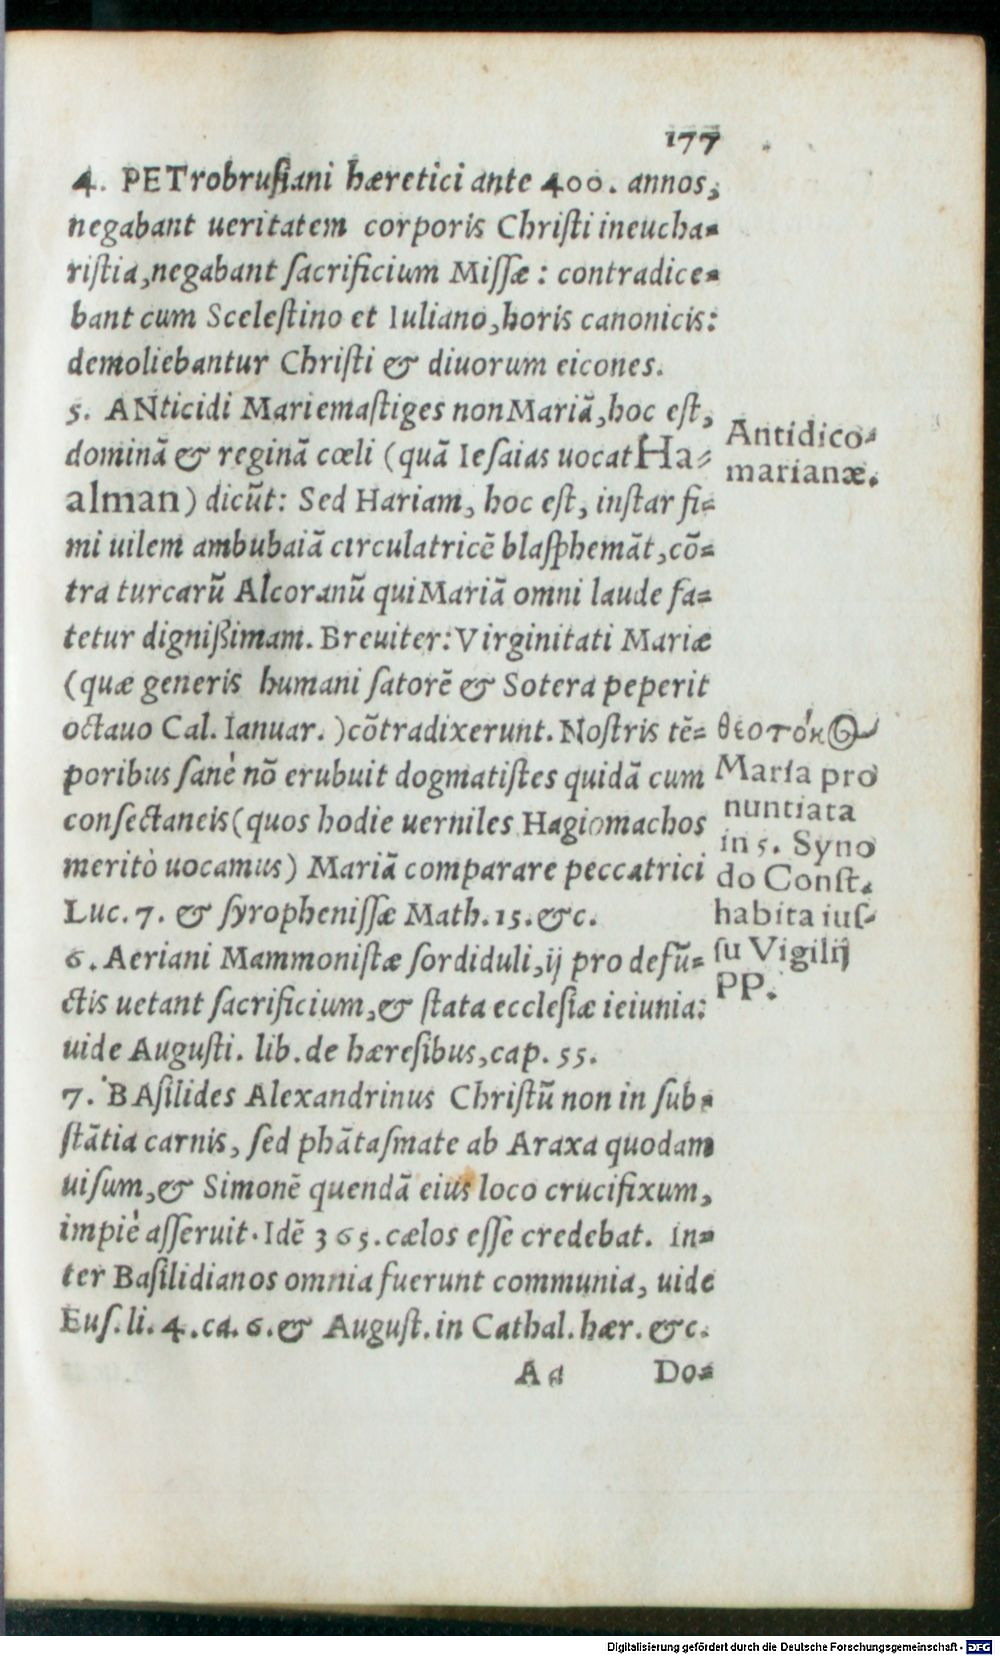 177
4. PETrobruſiani hæretici ante 400. annos,
negabant ueritatem corporis Chriſti in eucha=
riſtia, negabant ſacrificium Miſſæ: contradice=
bant cum Sceleſtino et Iuliano, horis canonicis:
demoliebantur Chriſti & diuorum eicones.
5. ANticidi Mariemaſtiges non Mariã, hoc eſt,
dominã & reginã cœli (quã Ieſaias uocat Ha=
alman) dicũt: Sed Hariam, hoc eſt, inſtar fi=
mi uilem ambubaiã circulatricẽ blaſphemãt, cõ=
tra turcarũ Alcoranũ qui Mariã omni laude fa=
tetur dignißimam. Breuiter: Virginitati Mariæ
(quæ generis humani ſatorẽ & Sotera peperit
octauo Cal. Ianuar.) cõtradixerunt. Noſtris tẽ=
poribus ſanè nõ erubuit dogmatiſtes quidã cum
conſectaneis (quos hodie uerniles Hagiomachos
meritò uocamus) Mariã comparare peccatrici
Luc. 7. & ſyropheniſſæ Math. 15. &c.
6. Aeriani Mammoniſtæ ſordiduli, ij pro defũ=
ctis uetant ſacrificium, & ſtata eccleſiæ ieiunia:
uide Auguſti. lib. de hæreſibus, cap. 55.
7. BAſilides Alexandrinus Chriſtũ non in ſub=
ſtãtia carnis, ſed phãtaſmate ab Araxa quodam
uiſum, & Simonẽ quendã eius loco crucifixum,
impiè aſſeruit. Idẽ 365. cælos eſſe credebat. In=
ter Baſilidianos omnia fuerunt communia, uide
Euſ. li. 4. ca. 6. & Auguſt. in Cathal. hær. &c.
Aa Do=
Antidico=
marianæ.
θεοτόκος
Maria pro
nuntiata
in 5. Syno
do Conſt.
habita iuſ=
ſu Vigilij
PP.
Digitalisierung gefördert durch die Deutsche Forschungsgemeinschaft - DFG